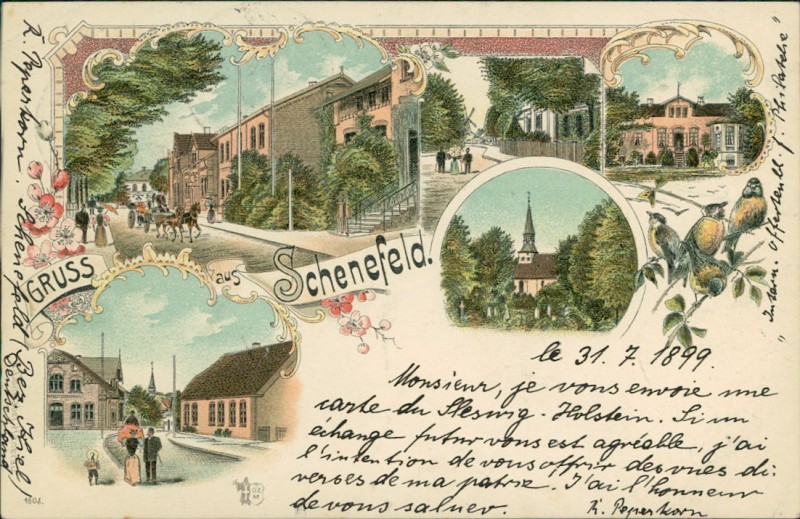 GRUSS aus Schenefeld.
le 31. 7. 1899.
Monsieur, je vous envoie une
carte du Sleswig-Holstein. Si un
échange futur vous est agréable, j'ai
l'intention de vous offrir des vues di-
verses de ma patrie. J'ai l'honneur
de vous saluer.
R. Peperkorn
R. Peperkorn. Schenefeld / Bez. Kiel /
Deutschland
Insern. Offertenbl. f. Philatelie"